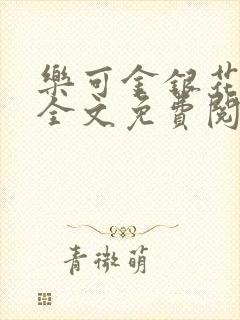 樂可金銀花
全文免費閱
青微萌